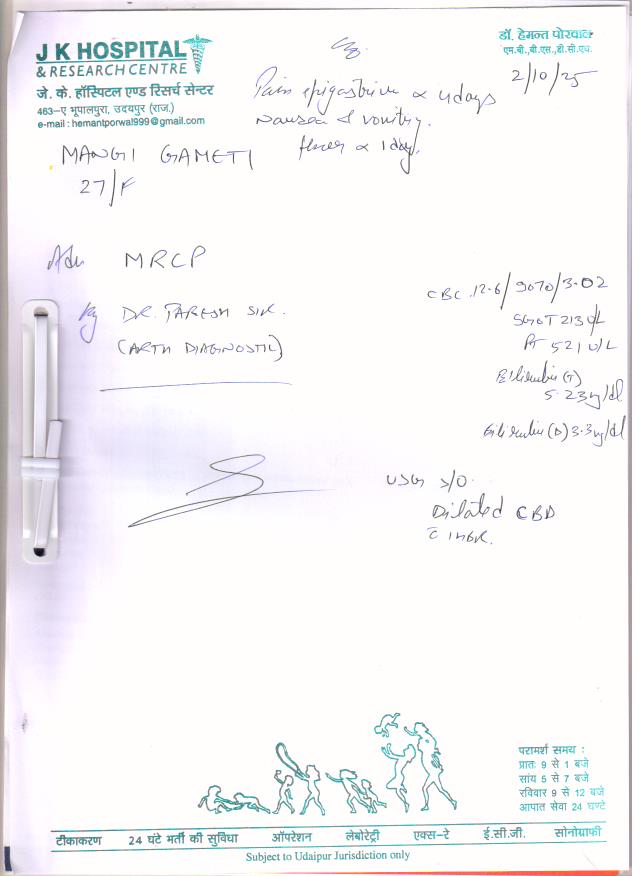 J K HOSPITAL
& RESEARCH CENTRE
जे. के. हॉस्पिटल एण्ड रिसर्च सेन्टर
463-ए भूपालपुरा, उदयपुर (राज.)
e-mail : hemantporwal999@gmail.com
डॉ. हेमन्त पोरवाल
एम.बी.,बी.एस.,डी.सी.एच.
2/10/25
Pain epigastrium x 4 days
Nausea & vomiting.
fever x 1 day.
MANGI GAMETI
27/F
Adv MRCP
By DR. PARESH SIR.
(ARTH DIAGNOSTIC)
CBC 12.6/9070/3.02
SGOT 213 U/L
PT 521 U/L
Bilirubin (T)
5.23 mg/dl
Bilirubin (D) 3.3 mg/dl
USG S/O.
Dilated CBD
c IHBR.
परामर्श समय :
प्रातः 9 से 1 बजे
सांय 5 से 7 बजे
रविवार 9 से 12 बजे
आपात सेवा 24 घण्टे
टीकाकरण 24 घंटे भर्ती की सुविधा ऑपरेशन लेबोरेट्री एक्स-रे ई.सी.जी. सोनोग्राफी
Subject to Udaipur Jurisdiction only